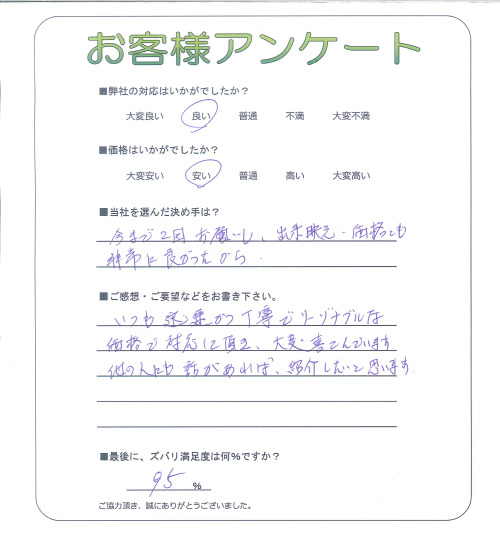 お客様アンケート
■弊社の対応はいかがでしたか？
大変良い 良い 普通 不満 大変不満
■価格はいかがでしたか？
大変安い 安い 普通 高い 大変高い
■当社を選んだ決め手は？
今まで2回お願いし、出来映え・価格とも
非常に良かったから
■ご感想・ご要望などをお書き下さい。
いつも迅速かつ丁寧でリーゾナブルな
価格で対応して頂き、大変喜こんでいます
他の人にも話があれば、紹介したいと思います。
■最後に、ズバリ満足度は何%ですか？
95 %
ご協力頂き、誠にありがとうございました。